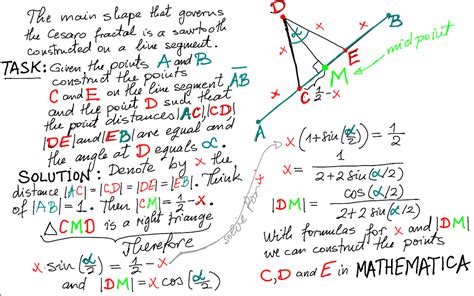 The main shape that governs
the Cesaro fractal is a sawtooth
constructed on a line segment.
TASK: Given the points A and B
construct the points
C and E on the line segment AB
and the point D such that
the point distances |AC|, |CD|
|DE| and |EB| are equal and
the angle at D equals α.
SOLUTION: Denote by x the
distance |AC| = |CD| = |DE| = |EB|. Think
of |AB| = 1. Then |CM| = 1/2 - x.
△CMD is a right triangle
Therefore
x sin(α/2) = 1/2 - x
and |DM| = x cos(α/2)
solve for x
D
x
B
α
x
x
E
M
midpoint
C
1/2 - x
x
A
x(1 + sin(α/2)) = 1/2
x = 1 / (2 + 2 sin(α/2))
|DM| = cos(α/2) / (2 + 2 sin(α/2))
With formulas for x and |DM|
we can construct the points
C, D and E in MATHEMATICA